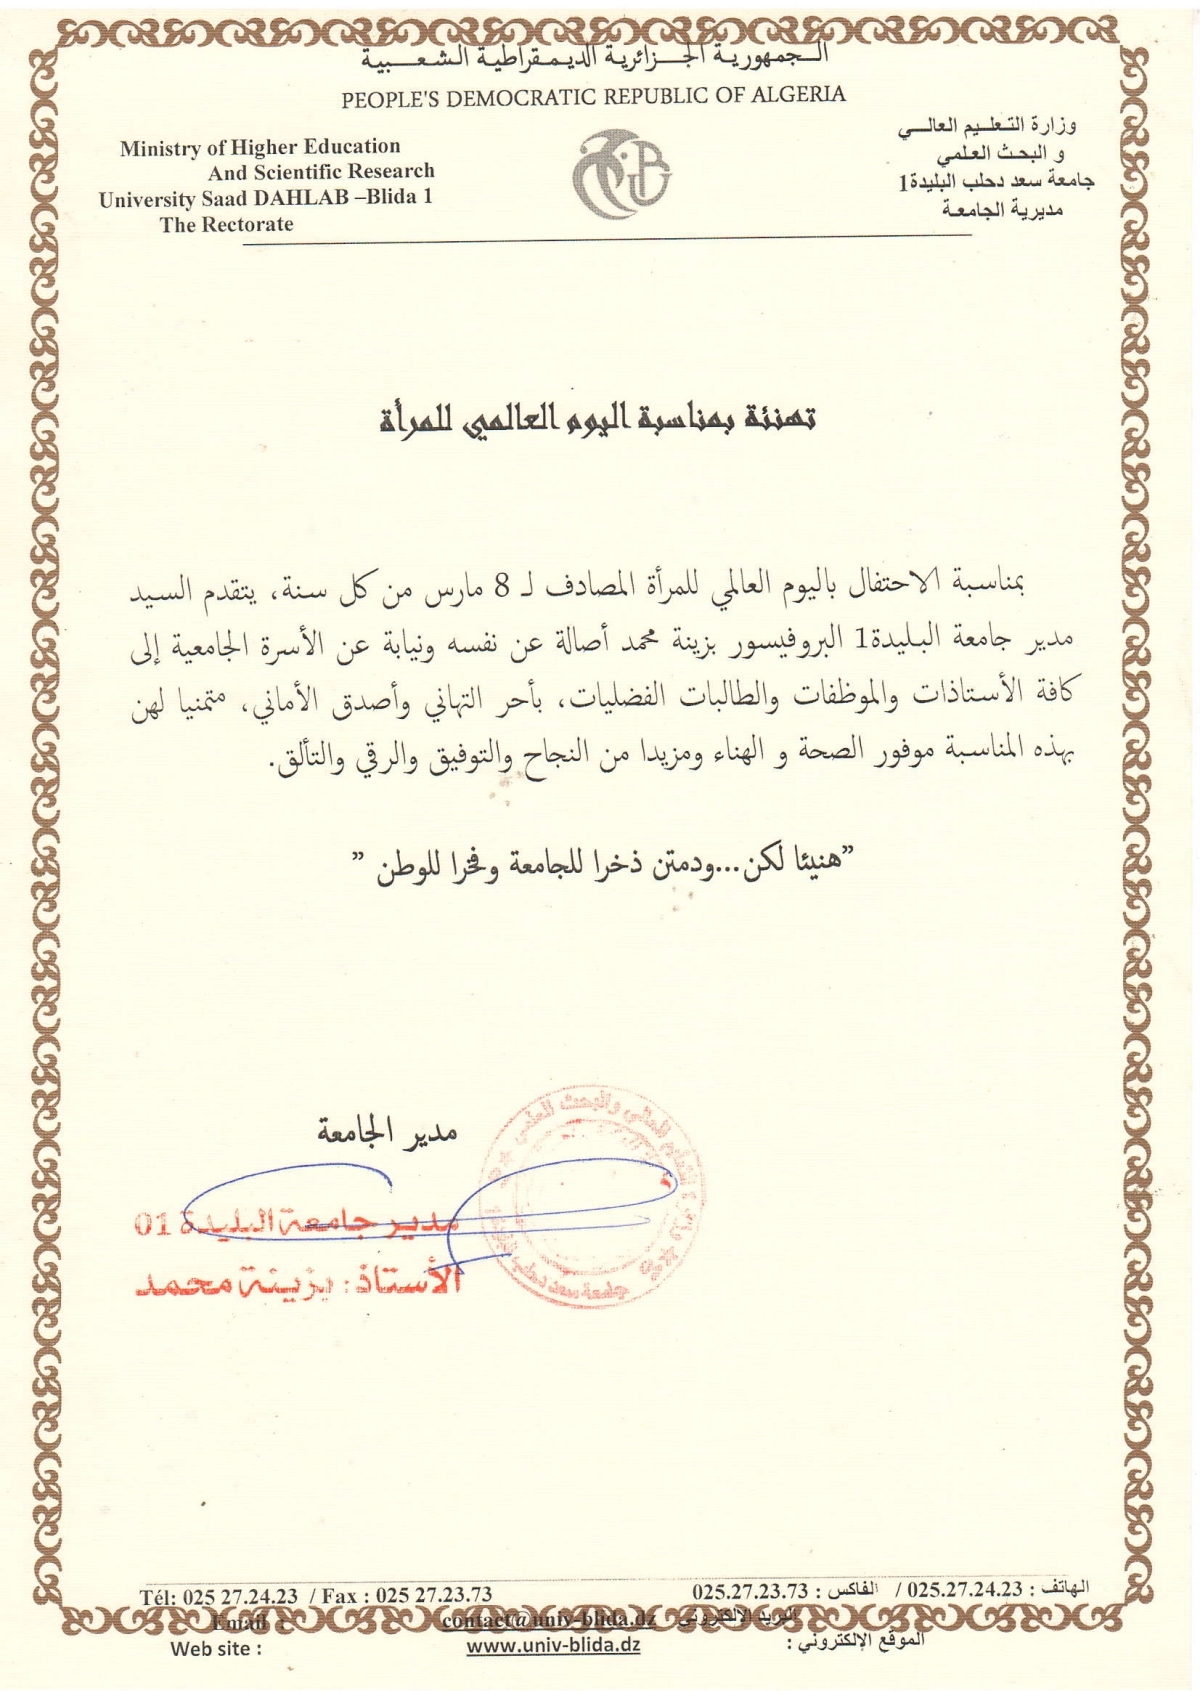 الـجمهوريـة الجـزائريـة الديـمـقراطيـة الـشـعـــبية
PEOPLE'S DEMOCRATIC REPUBLIC OF ALGERIA
Ministry of Higher Education
And Scientific Research
University Saad DAHLAB –Blida 1
The Rectorate
وزارة التـعلـيم العالـــي
و البحث العلمي
جامعة سعد دحلب البليدة1
مديرية الجامعة
تهنئة بمناسبة اليوم العالمي للمرأة
بمناسبة الاحتفال باليوم العالمي للمرأة المصادف لـ 8 مارس من كل سنة، يتقدم السيد
مدير جامعة البليدة1 البروفيسور بزينة محمد أصالة عن نفسه ونيابة عن الأسرة الجامعية إلى
كافة الأستاذات والموظفات والطالبات الفضليات، بأحر التهاني وأصدق الأماني، متمنيا لهن
بهذه المناسبة موفور الصحة و الهناء ومزيدا من النجاح والتوفيق والرقي والتألق.
”هنيئا لكن...ودمتن ذخرا للجامعة وفخرا للوطن ”
مدير الجامعة
مدير جامعة البليدة 01
الأستاذ: بزينة محمد
التعليم العالي والبحث العلمي
جامعة سعد دحلب
Tél: 025 27.24.23 / Fax : 025 27.23.73
الهاتف : 025.27.24.23 / الفاكس : 025.27.23.73
Email : contact@univ-blida.dz البريد الالكتروني
Web site : www.univ-blida.dz الموقع الإلكتروني :